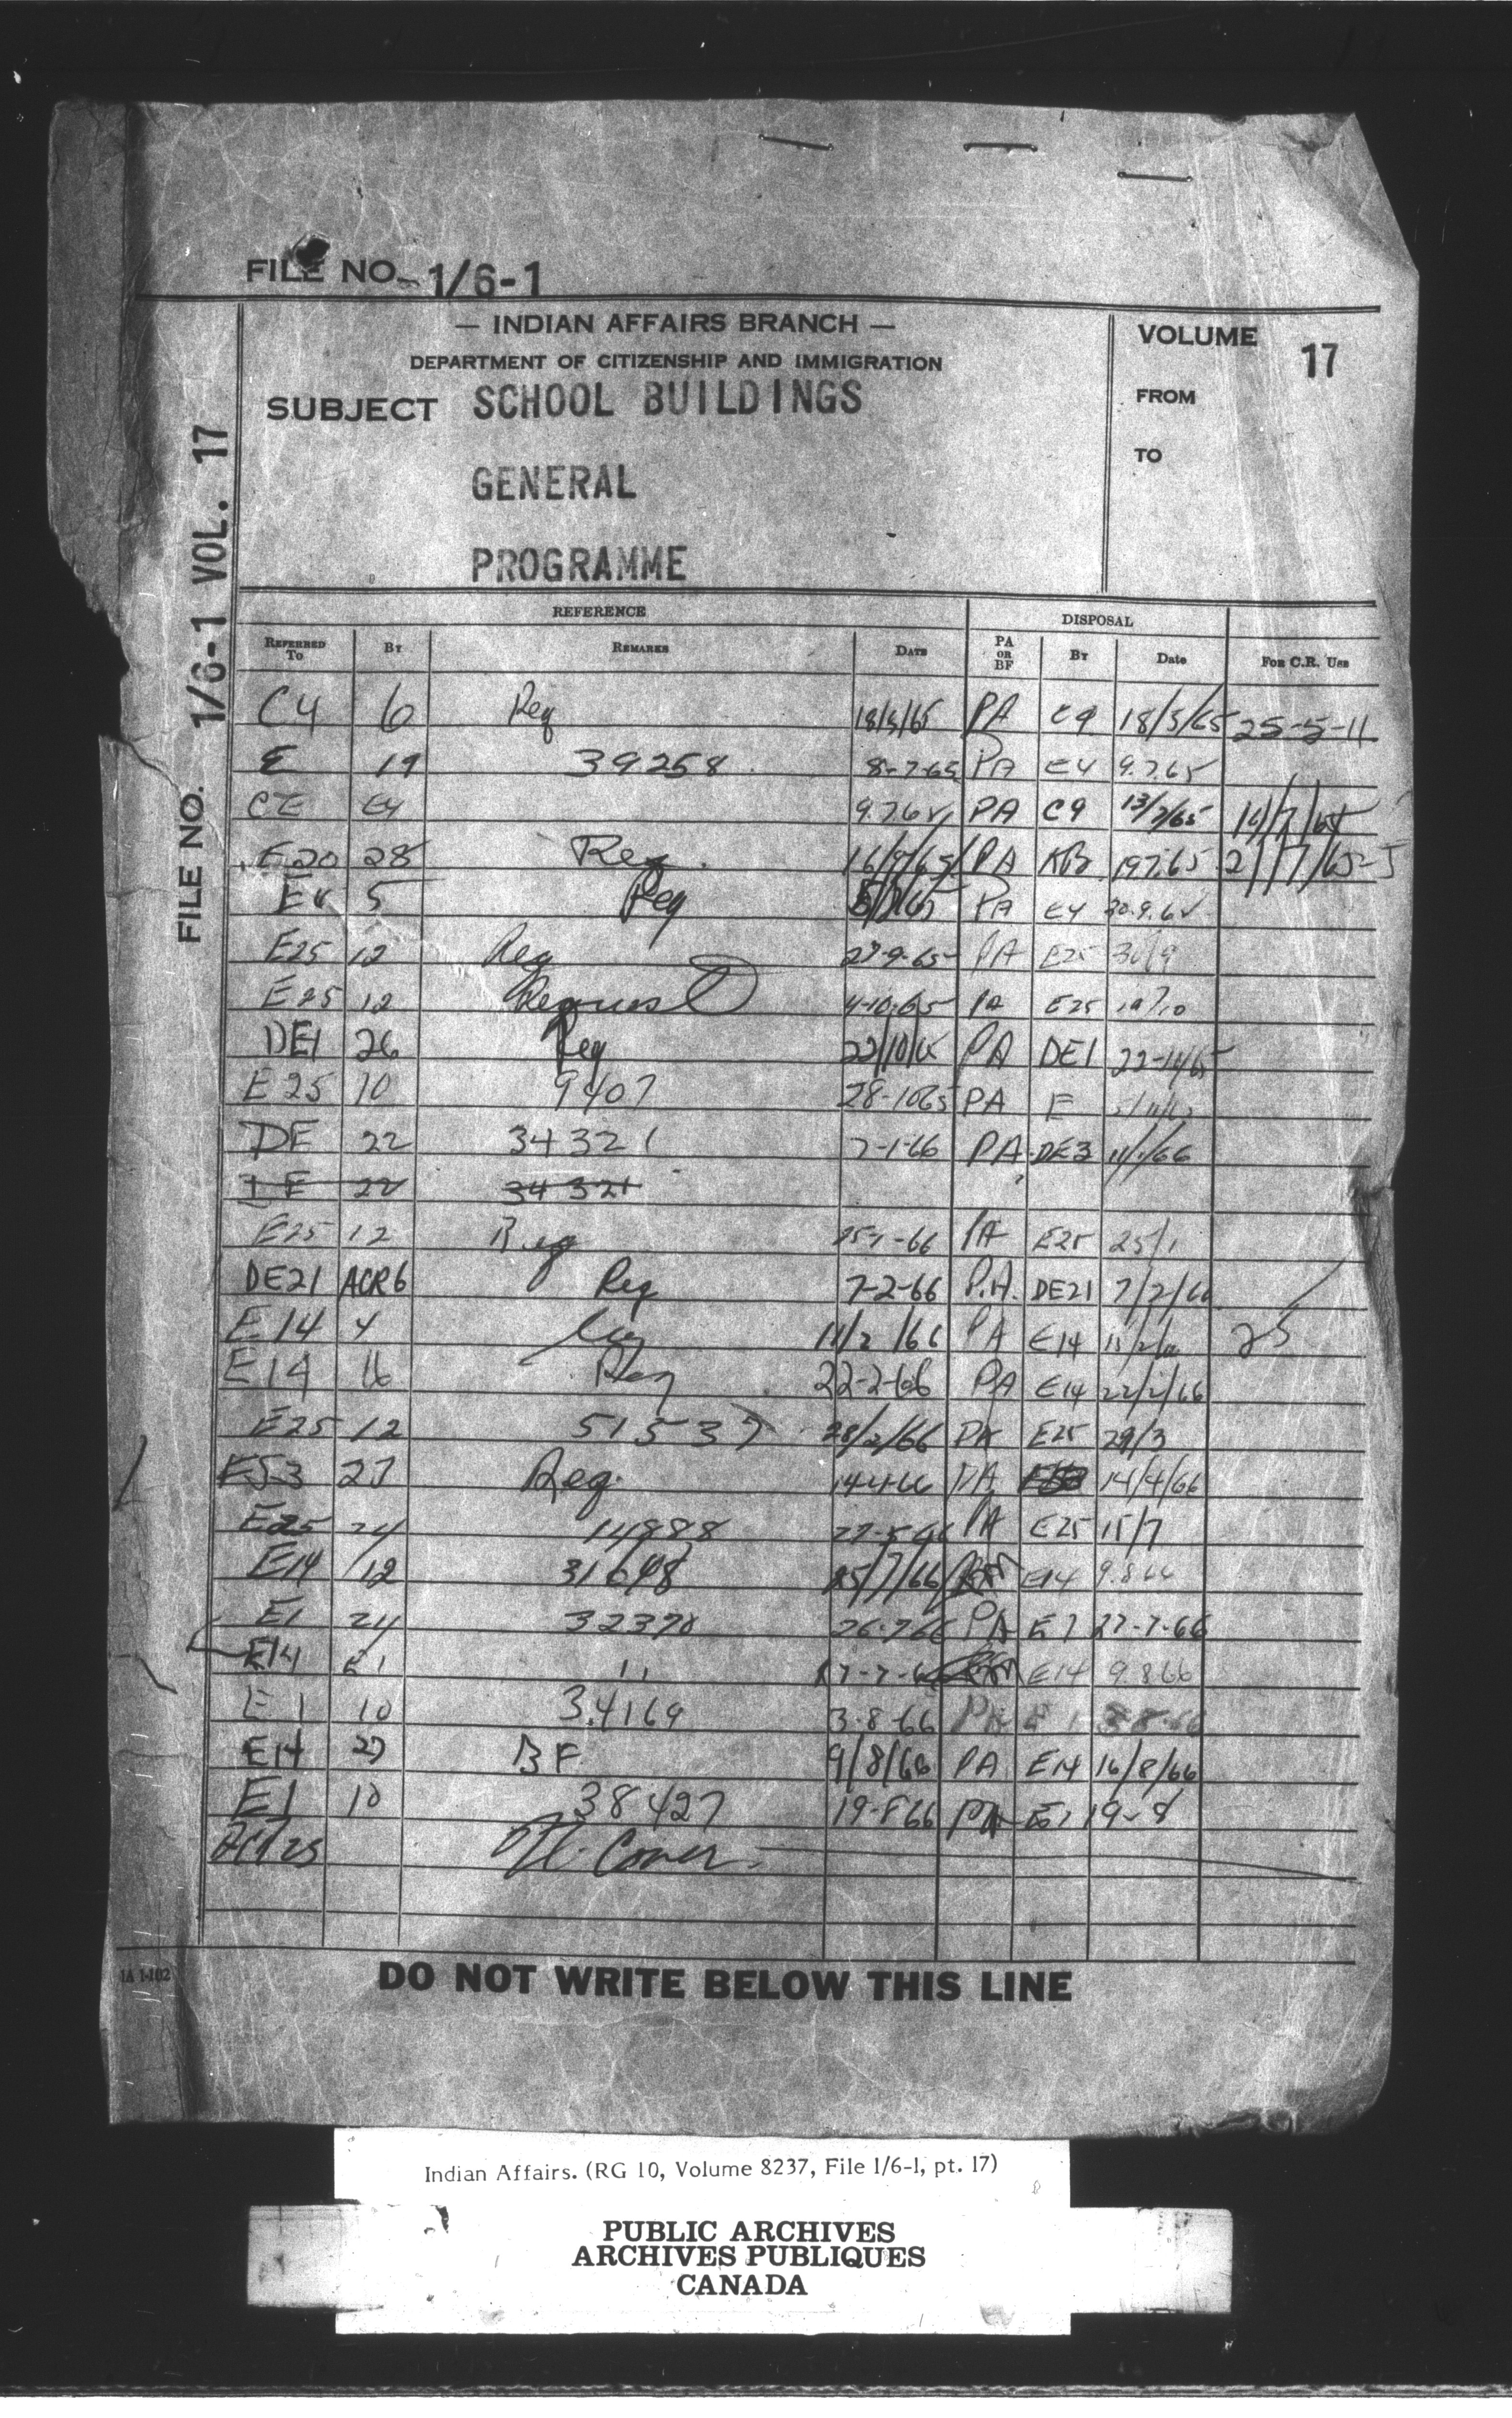 FILE NO. 1/6-1
— INDIAN AFFAIRS BRANCH —
DEPARTMENT OF CITIZENSHIP AND IMMIGRATION
SUBJECT SCHOOL BUILDINGS
GENERAL
PROGRAMME
VOLUME 17
FROM
TO
FILE NO. 1/6-1 VOL. 17
REFERENCE DISPOSAL
REFERRED TO BY REMARKS DATE PA OR BF BY Date FOR C.R. USE
C4 6 Req 18/5/65 PA C9 18/5/65 25-5-11
E 19 39258 8-7-65 PA E4 9.7.65
CE E4 9.7.65 PA C9 13/7/65 14/7/65
E20 28 Req. 16/7/65 PA 19.7.65 21/7/65-5
5 Req PA E4 30.9.65
E25 12 Req 27-9-65 PA E25 30/9
E25 12 Request 4-10-65 PA E25
DE1 26 Req 22/10/65 PA DE1
E25 10 9407 28-10-65 PA E
DE 22 34321 7-1-66 PA DE3 11/1/66
DE 22 34321
E25 12 Req 25-1-66 PA E25 25/1
DE21 ACR6 Req 7-2-66 P.A. DE21 7/2/66
E14 4 11/2/66 PA E14 25
E14 16 Req 22-2-66 PA E14 22/2/66
E25 12 51537 28/2/66 PA E25 29/3
E53 27 Req. 14-4-66 PA 14/4/66
E25 24 14888 27-5-66 PA E25 15/7
E14 12 31648 25/7/66 E14 9.8.66
E1 24 32370 26-7-66 PA E1 27-7-66
E14 E1 " 27-7-66 E14 9.8.66
E1 10 34169 3-8-66 PA E1
E14 27 BF 9/8/66 PA E14 16/8/66
E1 10 38427 19-8-66 PA E1 19-8
Cover
1A 1-102
DO NOT WRITE BELOW THIS LINE
Indian Affairs. (RG 10, Volume 8237, File 1/6-1, pt. 17)
PUBLIC ARCHIVES
ARCHIVES PUBLIQUES
CANADA